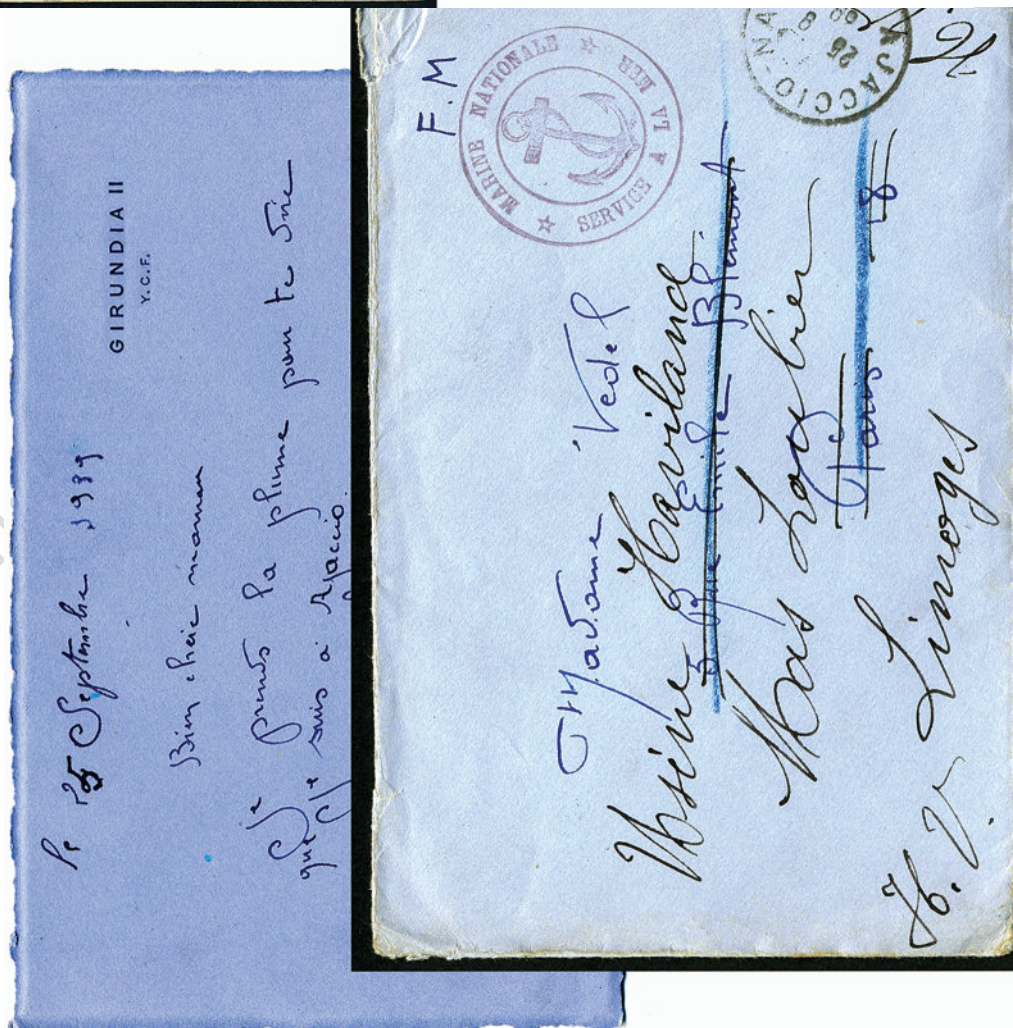 GIRUNDIA II
Y.C.F.
le 25 Septembre 1939
Bien chère maman
Je prends la plume pour te dire
que je suis à Ajaccio.
F.M
MARINE NATIONALE
SERVICE A LA MER
AJACCIO-NA
25
8
Madame Vedel
Usine Haviland
5 Rue Emile Blémont
Mas Loubier
Paris 18
H. V. Limoges